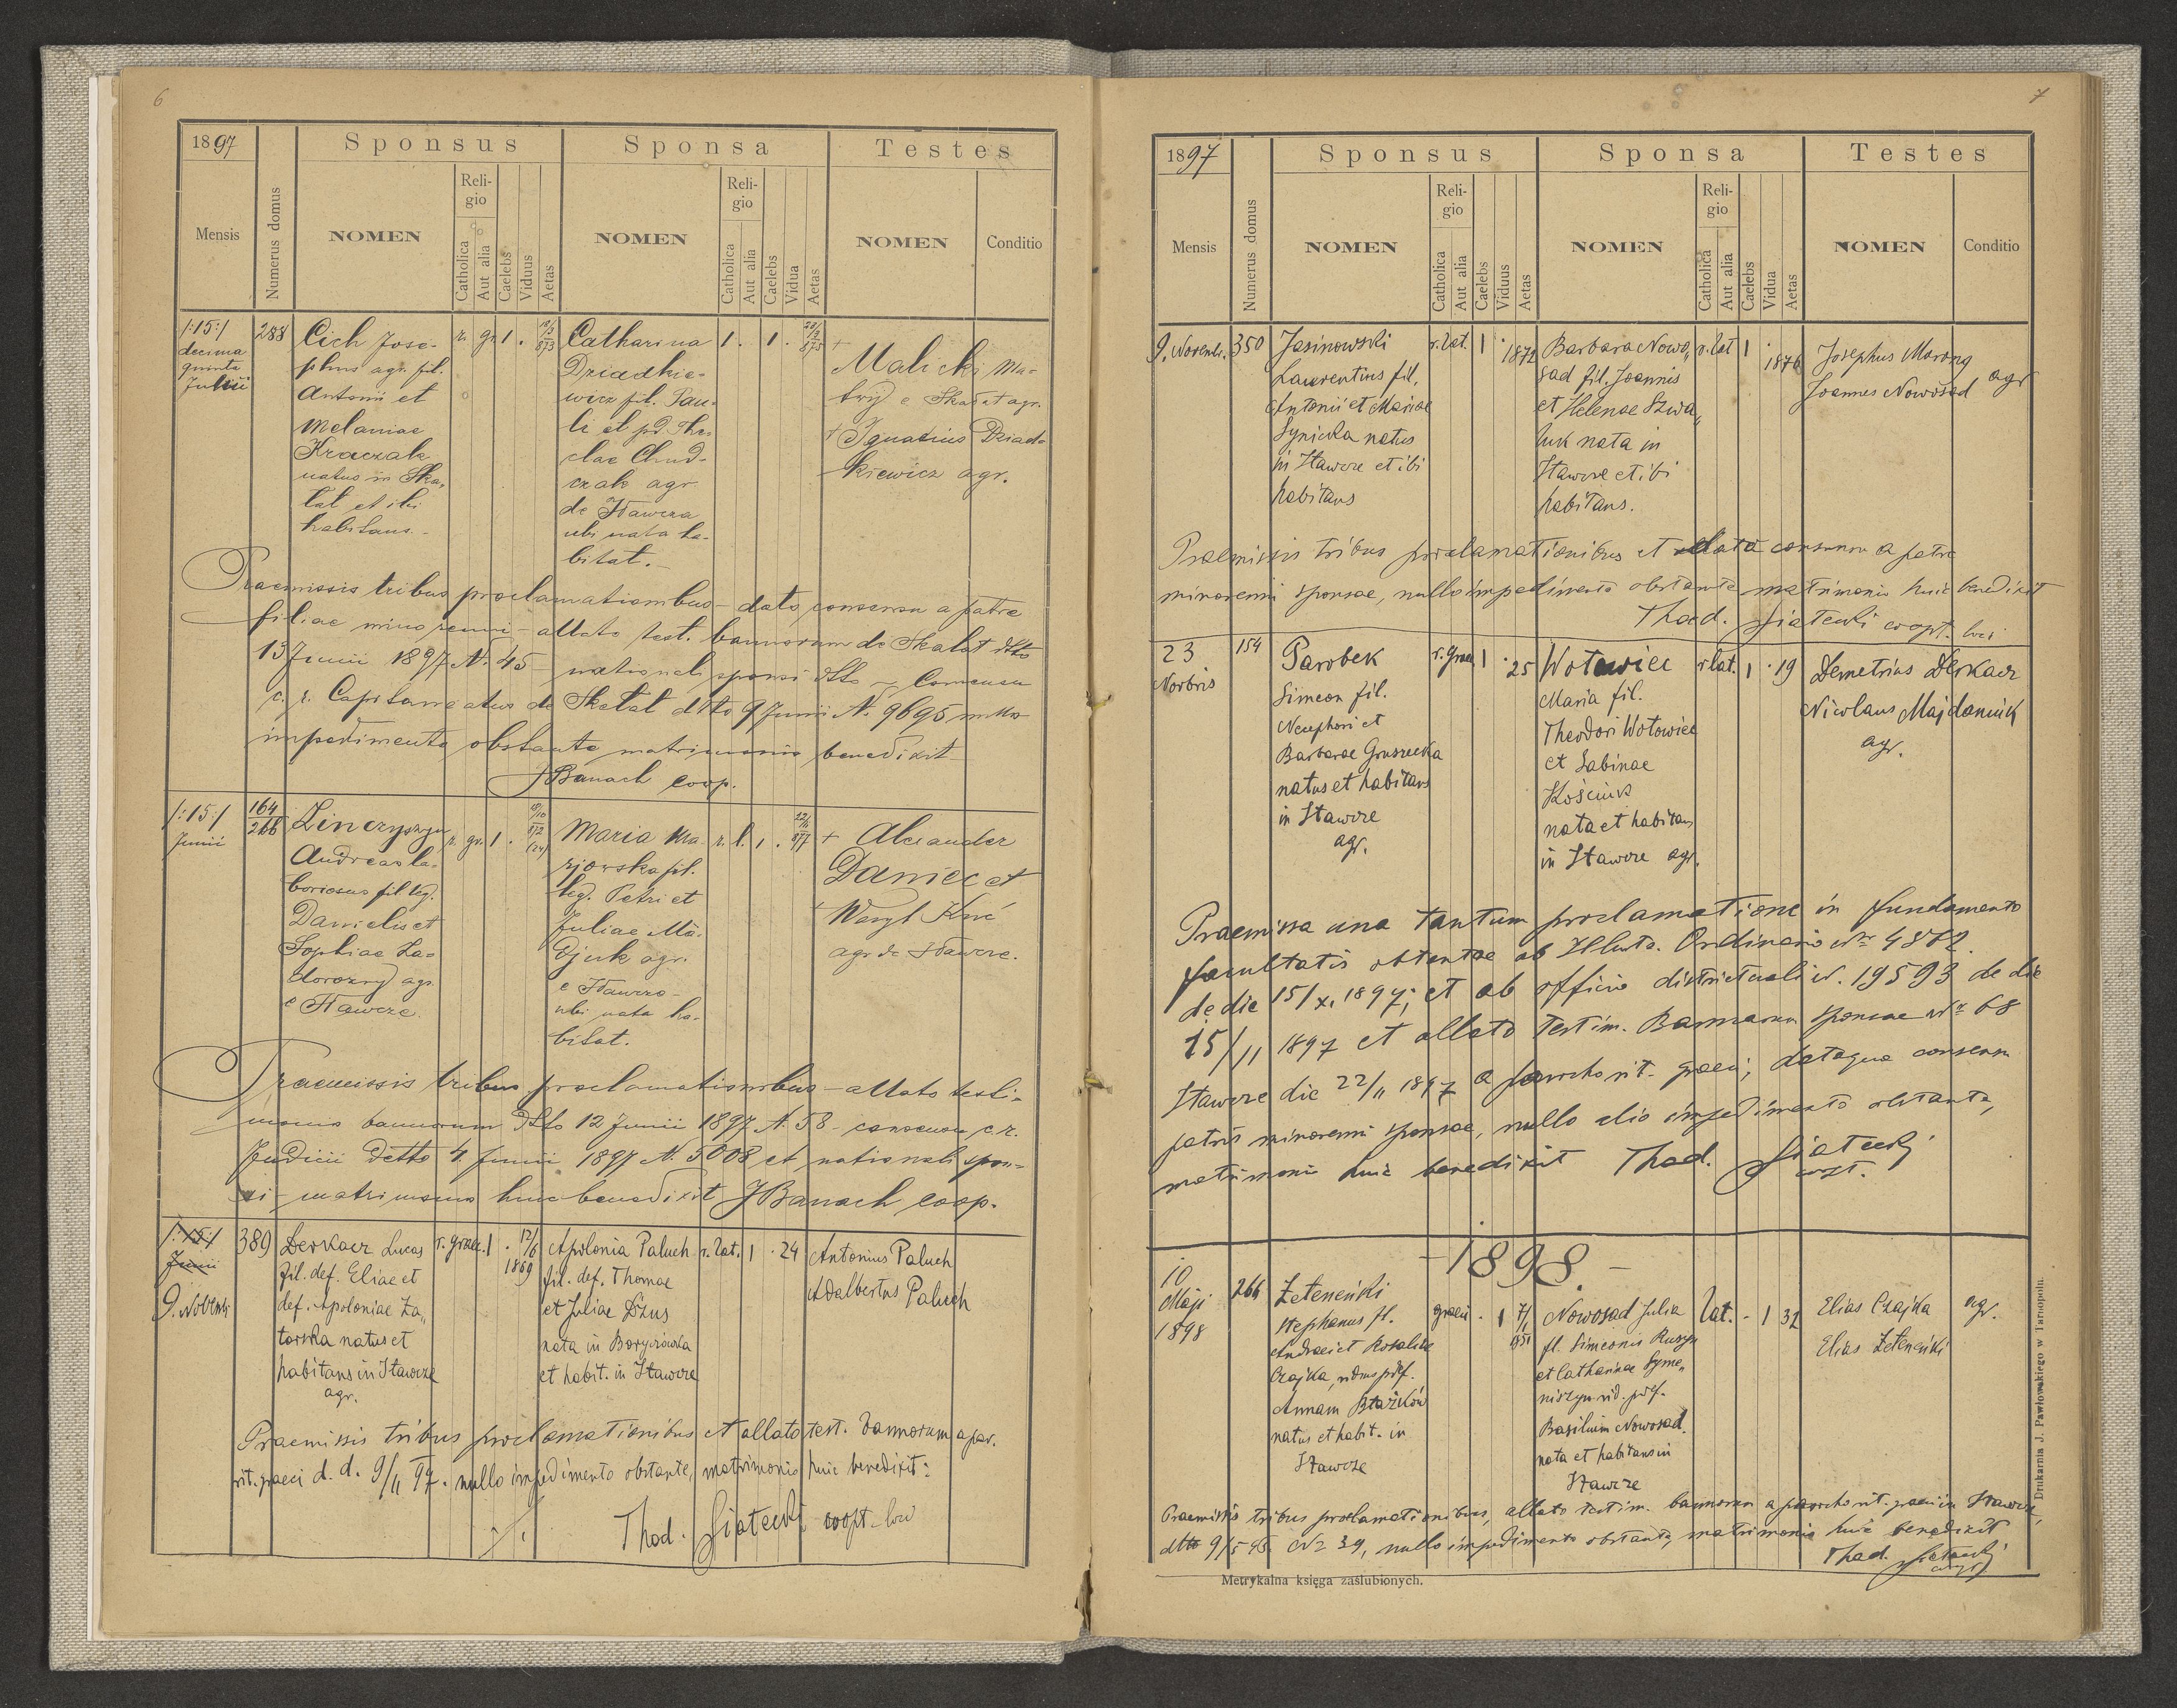 6
1897
Sponsus
Sponsa
Testes
Mensis
Numerus domus
NOMEN
Religio
Catholica
Aut alia
Caelebs
Viduus
Aetas
NOMEN
Religio
Catholica
Aut alia
Caelebs
Vidua
Aetas
NOMEN
Conditio
/:15:/
decima
quinta
288
Cich Jose-
phus agr. fil.
Antonii et
Melaniae
Kraczak
natus in Ska-
lat et ibi
habitans.
r. gr. 1 .
Catharina
Dziadkie-
wicz fil. Pau-
li et pd. The-
clae Chud-
czak agr.
de Hawcza
ubi nata ha-
bitat.
1. 1.
+ Malicki Ma-
e Skalat agr.
+ Ignatius Dziad-
kiewicz agr.
Praemissis tribus proclamationibus - dato consensu a patre
filiae minorenni - allato test. bannorum de Skalat dtto
13 Junii 1897 N. 45 - nationali sponsi dtto - Consensu
c. r. Capitaneatus de Skalat dtto 9 Junii N. 9695 nullo
impedimento obstante matrimonio benedixit
JBanach coop.
/:15:/
Junii
164
266
Zinczyszyn
Andreas la-
boriosus fil. leg.
Danielis et
Sophiae Za-
agr.
e Hawcze.
r. gr. 1 .
Maria Ma-
fil.
leg. Petri et
Juliae
agr.
e Hawcze
ubi nata ha-
bitat.
r. l. 1 .
+ Alexander
Daniec et
+ Wasyl
agr. de Hawcze.
Praemissis tribus proclamationibus - allato testi-
monio bannorum dtto 12 Junii 1897 N. 58 - consensu c. r.
Judicii detto 4 Junii 1897 N. 5008 et nationali spon-
si - matrimonio huic benedixit JBanach coop.
/:15:/
Junii
9. Novemb.
389
Derkacz Lucas
fil. def. Eliae et
def. Apoloniae Za„
torska natus et
habitans in Hawcze
agr.
r. graec. 1 . 12/6
1869
Apolonia Paluch
fil. def. Thomae
et Juliae Dżus
nata in Boryczówka
et habit. in Hawcze
r. lat. 1 . 24
Antonius Paluch
Adalbertus Paluch
Praemissis tribus proclamationibus et allato test. bannorum a par.
rit. graeci d. d. 9/11 97. nullo impedimento obstante, matrimonio huic benedixit:
Thad. Siatecki coopt. loci
7
1897
Sponsus
Sponsa
Testes
Mensis
Numerus domus
NOMEN
Religio
Catholica
Aut alia
Caelebs
Viduus
Aetas
NOMEN
Religio
Catholica
Aut alia
Caelebs
Vidua
Aetas
NOMEN
Conditio
9. Novemb.
350
Jasinowski
Laurentius fil.
Antonii et Mariae
Synicka natus
in Hawcze et ibi
habitans
r. lat. 1 . 1872
Barbara Nowo„
sad fil. Joannis
et Helenae Szwa„
luk nata in
Hawcze et ibi
habitans.
r. lat 1 . 1876
Josephus Marong
Joannes Nowosad agr
Praemissis tribus proclamationibus et allato consensu a patre
minorenni sponsae, nullo impedimento obstante matrimonio huic benedixit
Thad. Siatecki coopt. loci
23
Novbris
154
Parobek
Simeon fil.
Nicephori et
Barbarae Gruszecka
natus et habitans
in Hawcze
agr.
r. graec 1 . 25
Wotowiec
Maria fil.
Theodori Wotowiec
et Sabinae
Kościuk
nata et habitans
in Hawcze agr.
r lat. 1 . 19
Demetrius Derkacz
Nicolaus Majdaniuk
agr.
Praemissa una tantum proclamatione in fundamento
facultatis obtentae ab Illusto. Ordinario Nr 4872
de die 15/XI 1897; et ab officio districtuali N. 19593 de die
15/11 1897 et allato testim. Bannorum sponsae Nr 68
Hawcze die 22/11 1897 a parocho rit. graeci; datoque consensu
patris minorenni sponsae, nullo alio impedimento obstante,
matrimonio huic benedixit Thad. Siatecki
coopt.
- 1898. -
10
Maji
1898
266
Zeteneński
Stephanus fil.
Andreae et Rosaliae
Czajka, viduus post def.
Annam Btażków
natus et habit. in
Hawcze
graeci . 1
Nowosad Julia
fil. Simeonis Ruszyn
et Catharinae Syme„
niszyn vid. p. def.
Basilium Nowosad.
nata et habitans in
Hawcze
lat. - 1 32
Elias Czajka agr.
Elias Zeteneński
Praemissis tribus proclamationibus, allato testim. bannorum a parocho rit. graeci in Hawcze,
dtto 9/5 98. Nr 39, nullo impedimento obstante, matrimonio huic benedixit
Thad. Siatecki
Metrykalna księga zaślubionych.
Drukarnia J. Pawłowskiego w Tarnopolu.